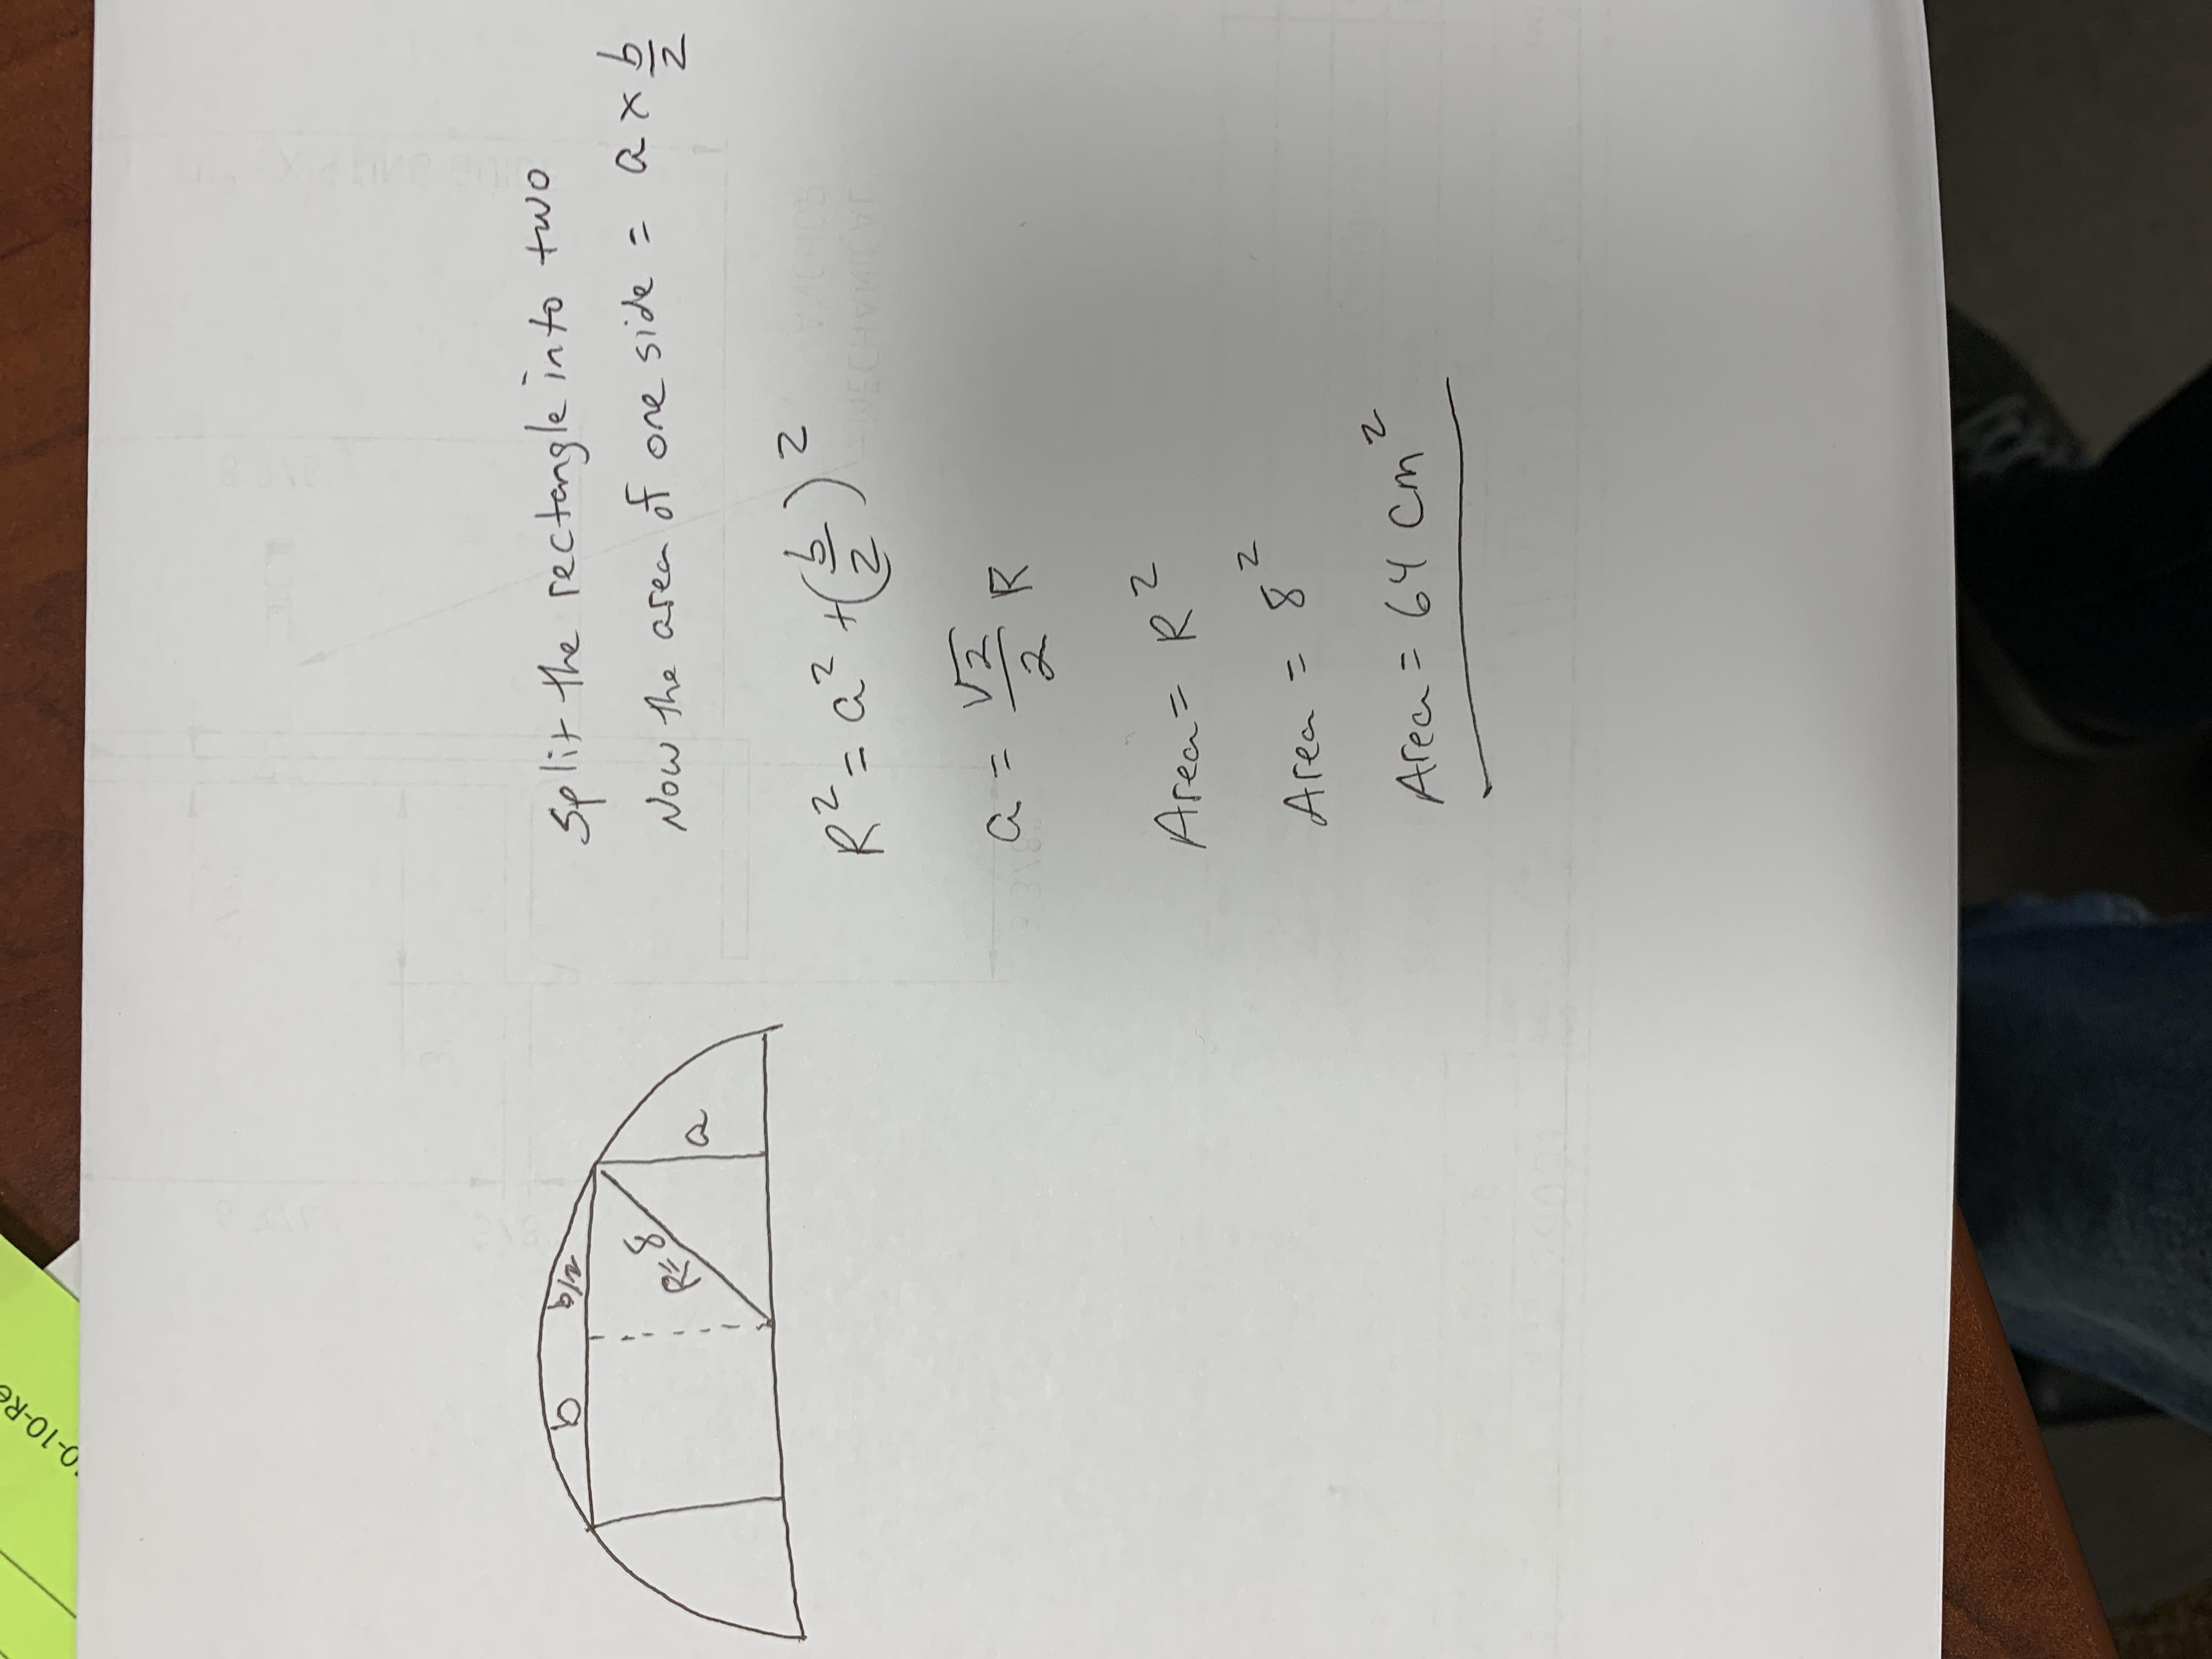 Split the rectangle into two
Now the area of one side = a × b/2
R² = a² + (b/2)²
a = √2/2 R
Area = R²
Area = 8²
Area = 64 cm²
b b/2
R=8
a
0-10-Re